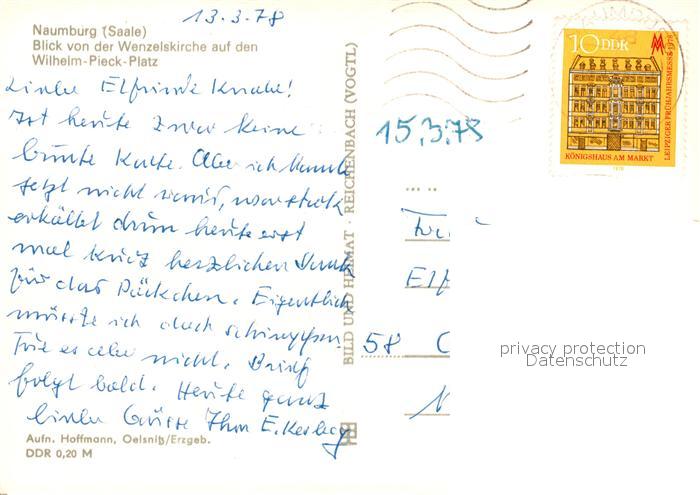 13.3.78
Naumburg (Saale)
Blick von der Wenzelskirche auf den
Wilhelm-Pieck-Platz
Liebe Elfriede
Ist heute zwar keine
bunte Karte. Aber ich konnte
jetzt nicht raus, war stark
erkältet drum heute erst
mal kurz herzlichen Dank
für das Päckchen. Eigentlich
müsste ich doch schimpfen.
Tue es aber nicht. Brief
folgt bald. Heute ganz
liebe Grüsse Ihre E.
Aufn. Hoffmann, Oelsnitz/Erzgeb.
DDR 0,20 M
BILD UND HEIMAT · REICHENBACH (VOGTL)
10 DDR
LEIPZIGER FRÜHJAHRSMESSE 1978
KÖNIGSHAUS AM MARKT
1978
15.3.78
Elf
58
privacy protection
Datenschutz